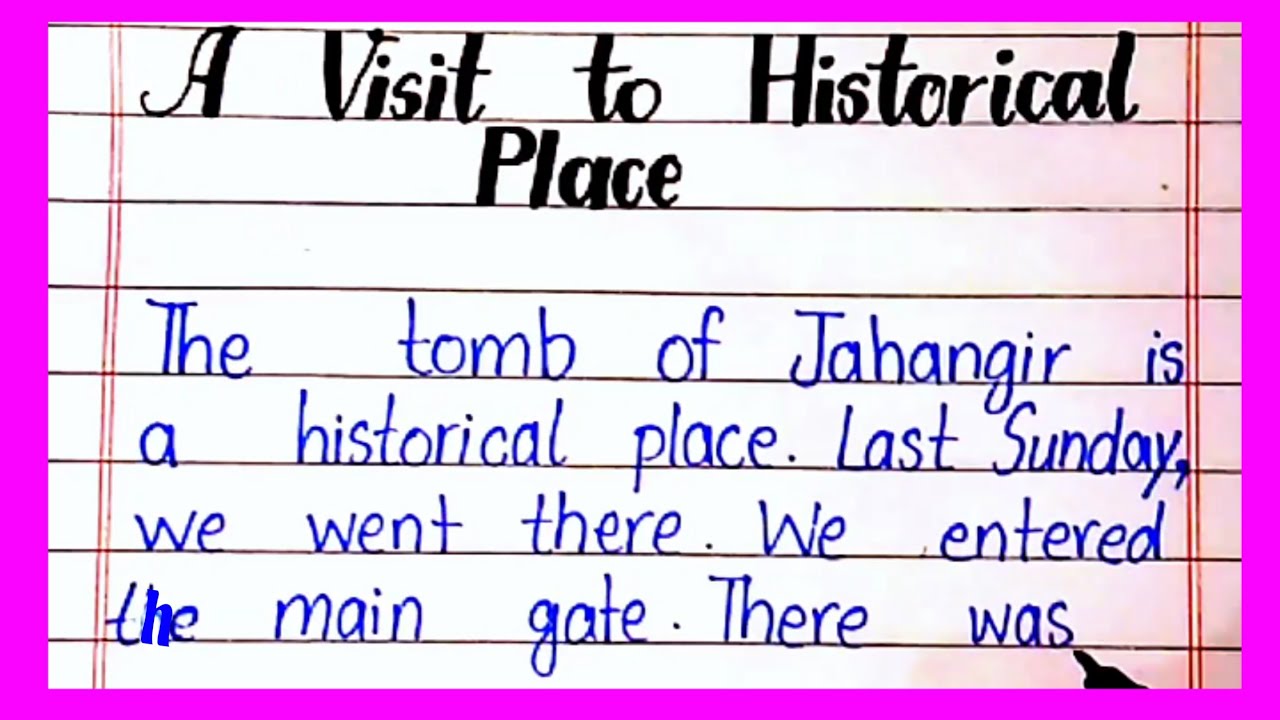 A Visit to Historical
Place
The tomb of Jahangir is
a historical place. Last Sunday,
we went there. We entered
the main gate. There was